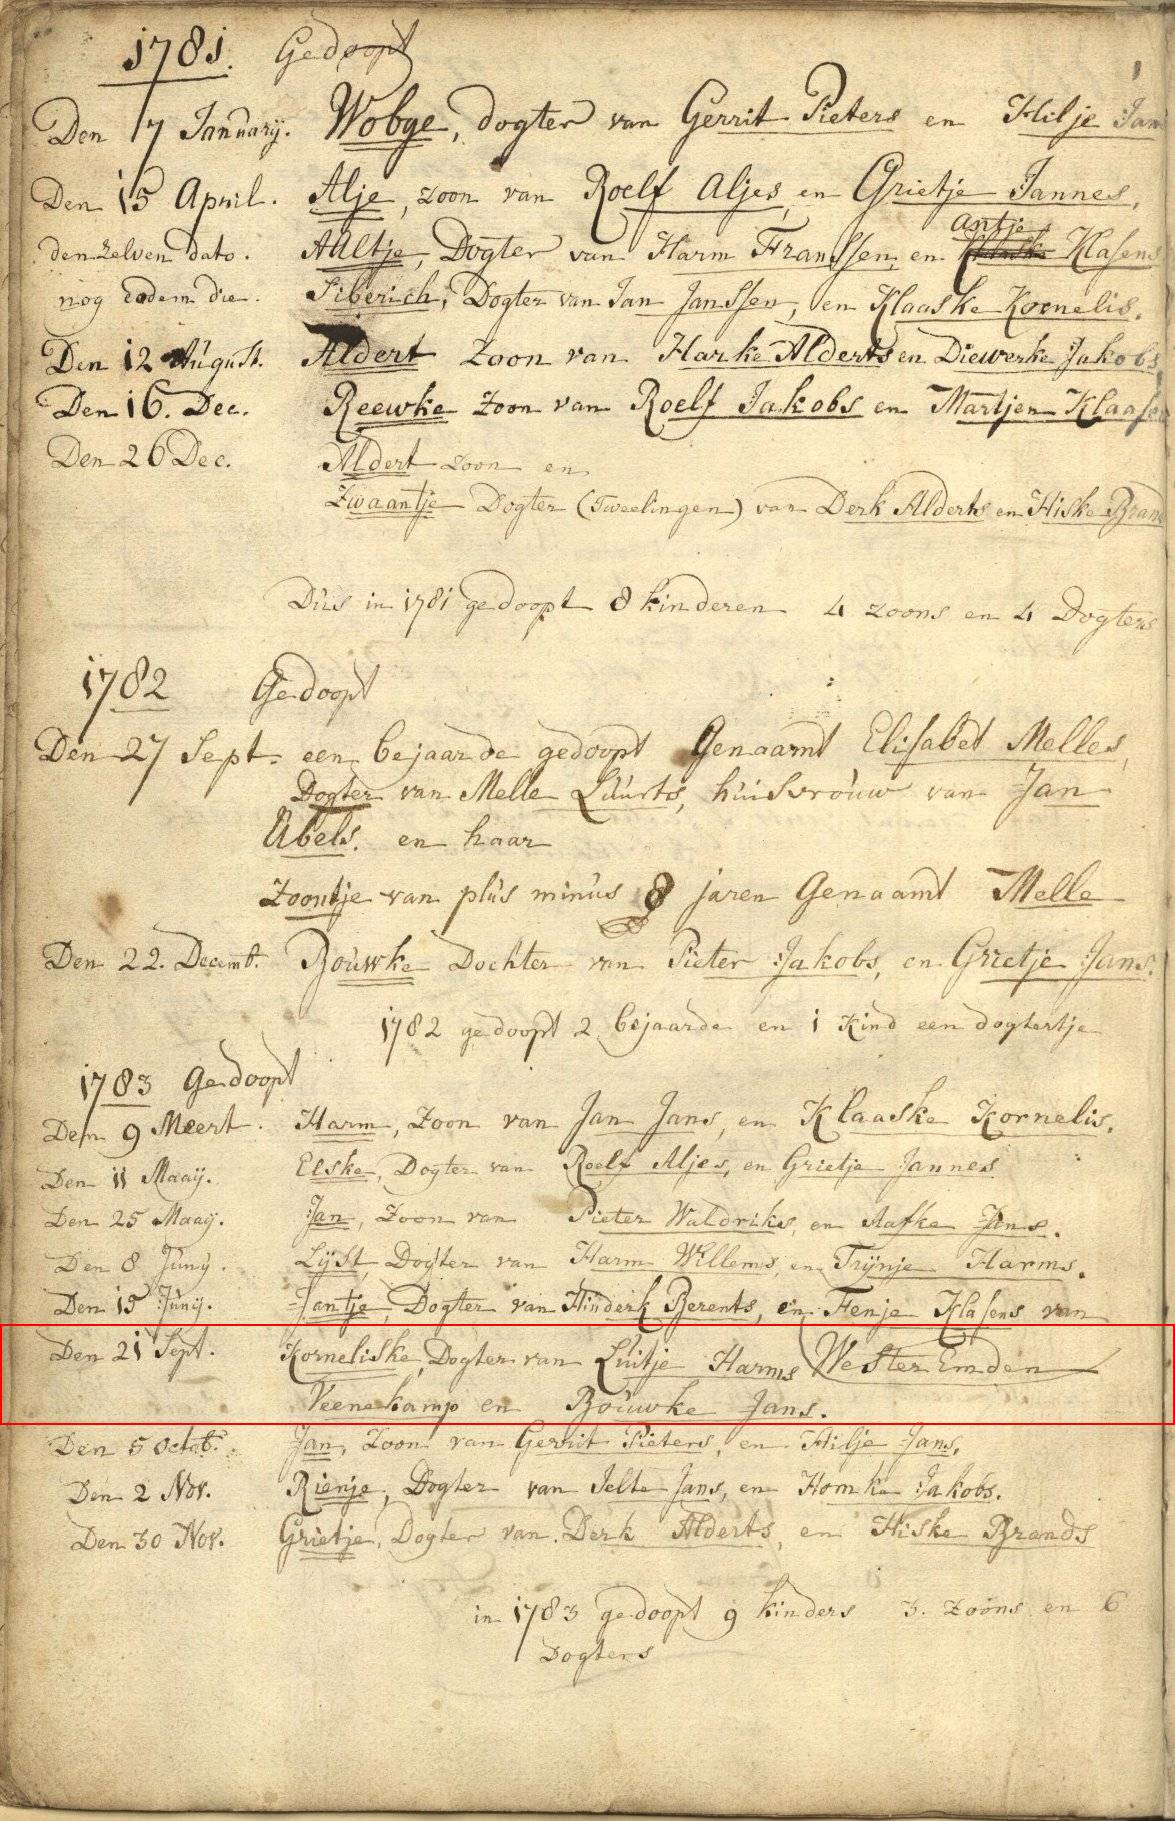 1781. Gedoopt
Den 17 January. Wobge, dogter van Gerrit Pieters en Hilje Jan
Den 15 April. Alje, zoon van Roelf Aljes, en Grietje Jannes,
antje
den zelven dato. Aaltje, Dogter van Harm Franssen, en Klaaske Klasens
nog eodem die. Siberich, Dogter van Jan Janssen, en Klaaske Kornelis.
Den 12 August. Aldert Zoon van Harke Alderts en Diewerke Jakobs
Den 16. Dec. Reewke Zoon van Roelf Jakobs en Martjen Klaasen
Den 26 Dec. Aldert zoon en
Zwaantje Dogter (Tweelingen) van Derk Alderts en Hiske Brand
Dus in 1781 gedoopt 8 kinderen 4 zoons en 4 Dogters
1782 Gedoopt
Den 27 Sept. een bejaarde gedoopt Genaamt Elisabet Melles,
Dogter van Melle Luurts, huisvrouw van Jan
Ubels. en haar
Zoontje van plus minus 8 jaren Genaamt Melle
Den 22. Decemb. Bouwke Dochter van Pieter Jakobs, en Grietje Jans.
1782 gedoopt 2 bejaarde en 1 Kind een dogtertje
1783 Gedoopt
Den 9 Meert. Harm, Zoon van Jan Jans, en Klaaske Kornelis.
Den 11 Maaij. Elske, Dogter van Roelf Aljes, en Grietje Jannes
Den 25 Maaij. Jan, Zoon van Pieter Waldriks, en Aafke Jans.
Den 8 Juny. Lijst, Dogter van Harm Willems, en Trijnje Harms.
Den 15 Junij. Jantje, Dogter van Hinderk Berents, en Fenje Klasens van
Den 21 Sept. Korneliske, Dogter van Luitje Harms (Wester Emden
Veenekamp en Bouwke Jans.
Den 5 Octob. Jan, Zoon van Gerrit Pieters, en Hilje Jans.
Den 2 Nov. Rienje, Dogter van Jelte Jans, en Homke Jakobs.
Den 30 Nov. Grietje, Dogter van Derk Alderts, en Hiske Brands
in 1783 gedoopt 9 kinders 3. zoons en 6
Dogters